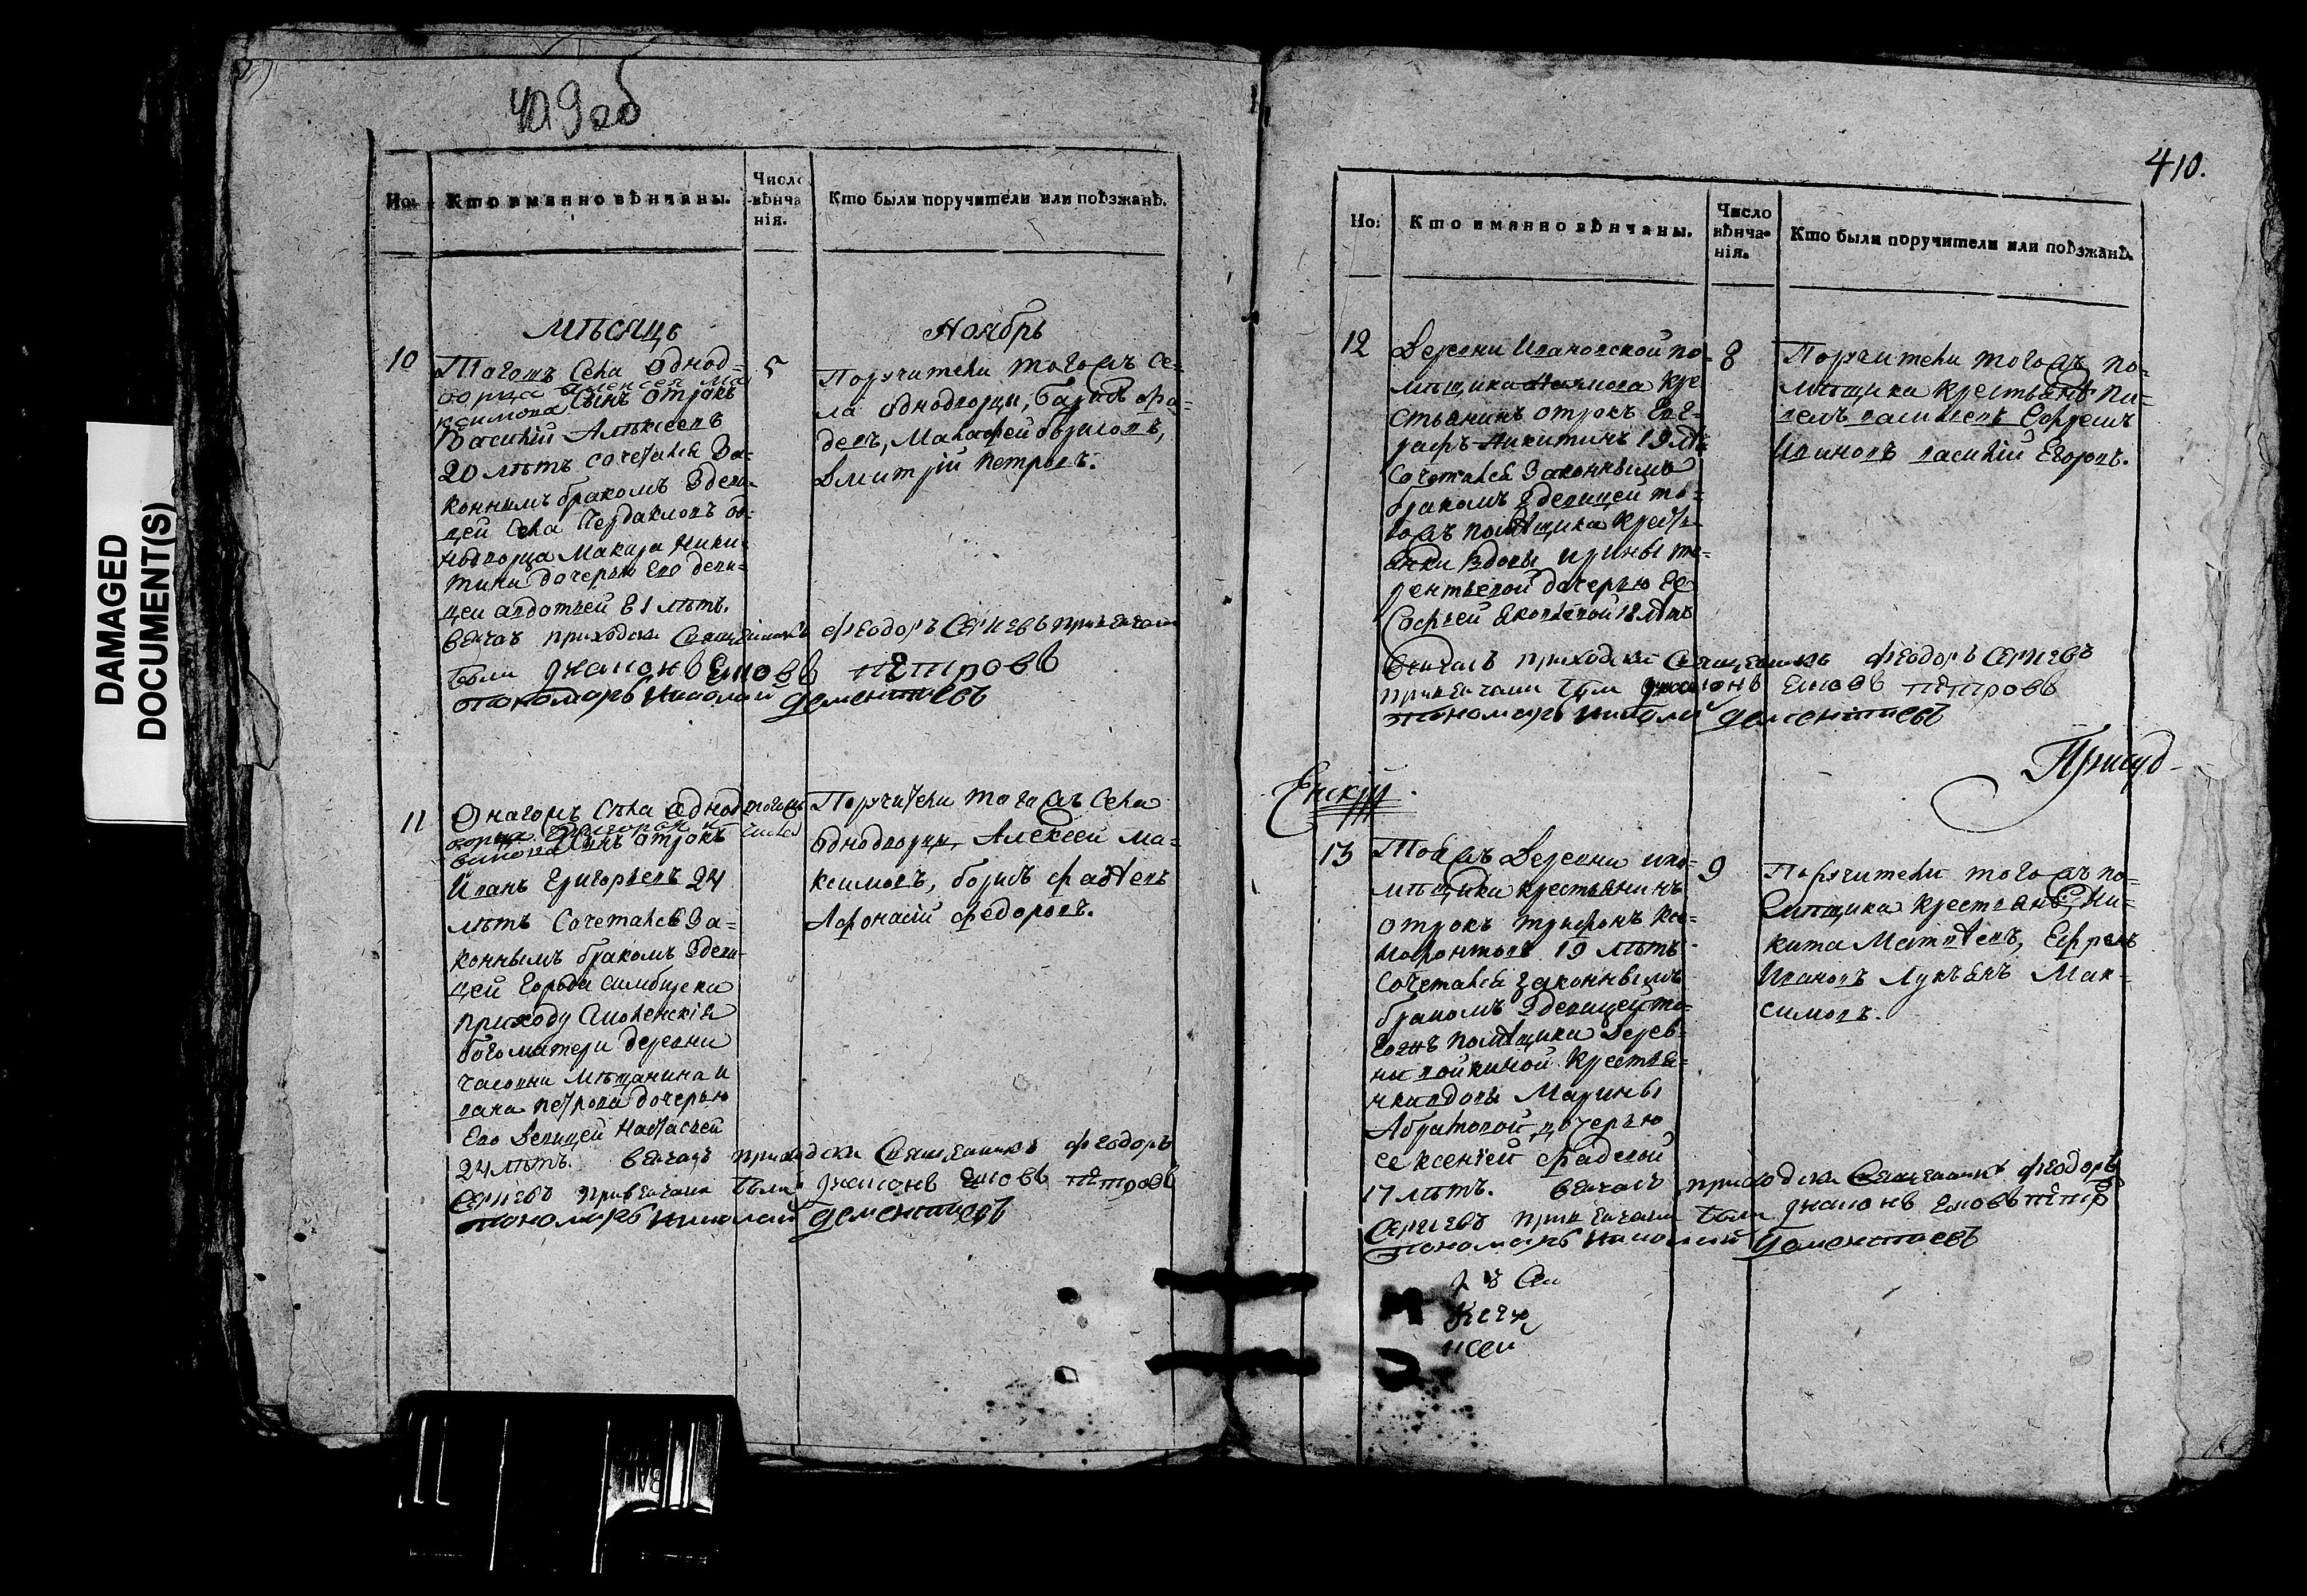 409 об
Но: Кто имянно вѣнчаны. Число вѣнча нія. Кто были поручители или поѣзжанѣ.
мѣсяцъ Ноябрь
10
Тогожъ Села Однод=
ворца Алексея Ма
ксимова Сынъ отрокъ
Василій Алексеевъ
20 лѣтъ сочетался За=
коннымъ бракомъ Здеви=
цей Села
нодворца Макара Ники=
тина дочерью Его деви=
цей авдотьей 21 лѣтъ.
5
Поручители тогожъ Се=
ла однодворцы, Борисъ фа=
деевъ, Малафей борисовъ,
Дмитрій Петровъ.
венчалъ приходски Священникъ Феодоръ Сергиевъ привенчани
были диаконъ Петровъ
пономарь Николай Дементиевъ
11
Онагожъ Села Однод
ворца Григорья
Сынъ отрокъ
Иванъ Григорьевъ 24
лѣтъ Сочетался За=
коннымъ бракомъ Здеви
цей Города Симбирска
приходу Смоленскія
богоматери деревни
часовни Мѣщанина и
вана Петрова дочерью
Его Девицей Настасьей
24 лѣтъ.
тогожъ
числа
Поручители тогожъ Села
однодворцы, Алексей Ма=
ксимовъ, борисъ фадѣевъ
Афонасій федоровъ.
венчалъ приходски Священникъ Феодоръ
Сергиевъ привенчани были диаконъ Петровъ
пономарь Николай Дементиевъ
410.
Но: Кто имянно вѣнчаны. Число вѣнча- нія. Кто были поручители или поѣзжанѣ.
12
Деревни Ивановской по=
мѣщика кре
стьянинъ отрокъ Евг=
рафъ Никитинъ 19 лѣ
Сочетался Законнымъ
бракомъ Здевицей то=
гожъ помѣщика Крестья=
янки Вдовы ирины те=
рентьевой дочерью Ее
Софьей Яковлевой 18 лѣтъ
8
Поручители тогожъ по=
мѣщика Крестьянѣ Па=
велъ василевъ Ефремъ
Ивановъ василій Егоровъ.
Венчалъ приходски Священникъ Феодоръ Сергиевъ
привенчани были диаконъ Петровъ
пономарь Николай Дементиевъ
Присуд-
13
Тойжъ Деревни ипо=
мѣщика крестьянинъ
отрокъ трифонъ
19 лѣтъ
Сочетался законнымъ
бракомъ Здевицей то=
гожъ помѣщика Дерев=
ни войкиной Крестья=
нки вдовы Марины
Абрамовой дочерью
ее ксеніей фадевой
17 лѣтъ.
9
Поручители тогожъ по=
мѣщика Крестьянѣ, Ни=
кита Матвѣевъ, Ефремъ
Ивановъ Лукьянъ Мак=
симовъ.
венчалъ приходски Священникъ Феодоръ
Сергиевъ привенчани были диаконъ
пономарь Николай Дементиевъ
DAMAGED
DOCUMENT(S)